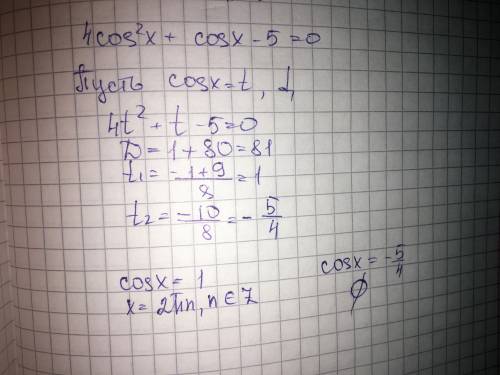 4cos²x + cosx - 5 = 0
Пусть cosx = t,
4t² + t - 5 = 0
D = 1 + 80 = 81
t₁ = (-1+9)/8 = 1
t₂ = -10/8 = -5/4
cosx = 1
x = 2πn, n ∈ Z
cosx = -5/4
∅